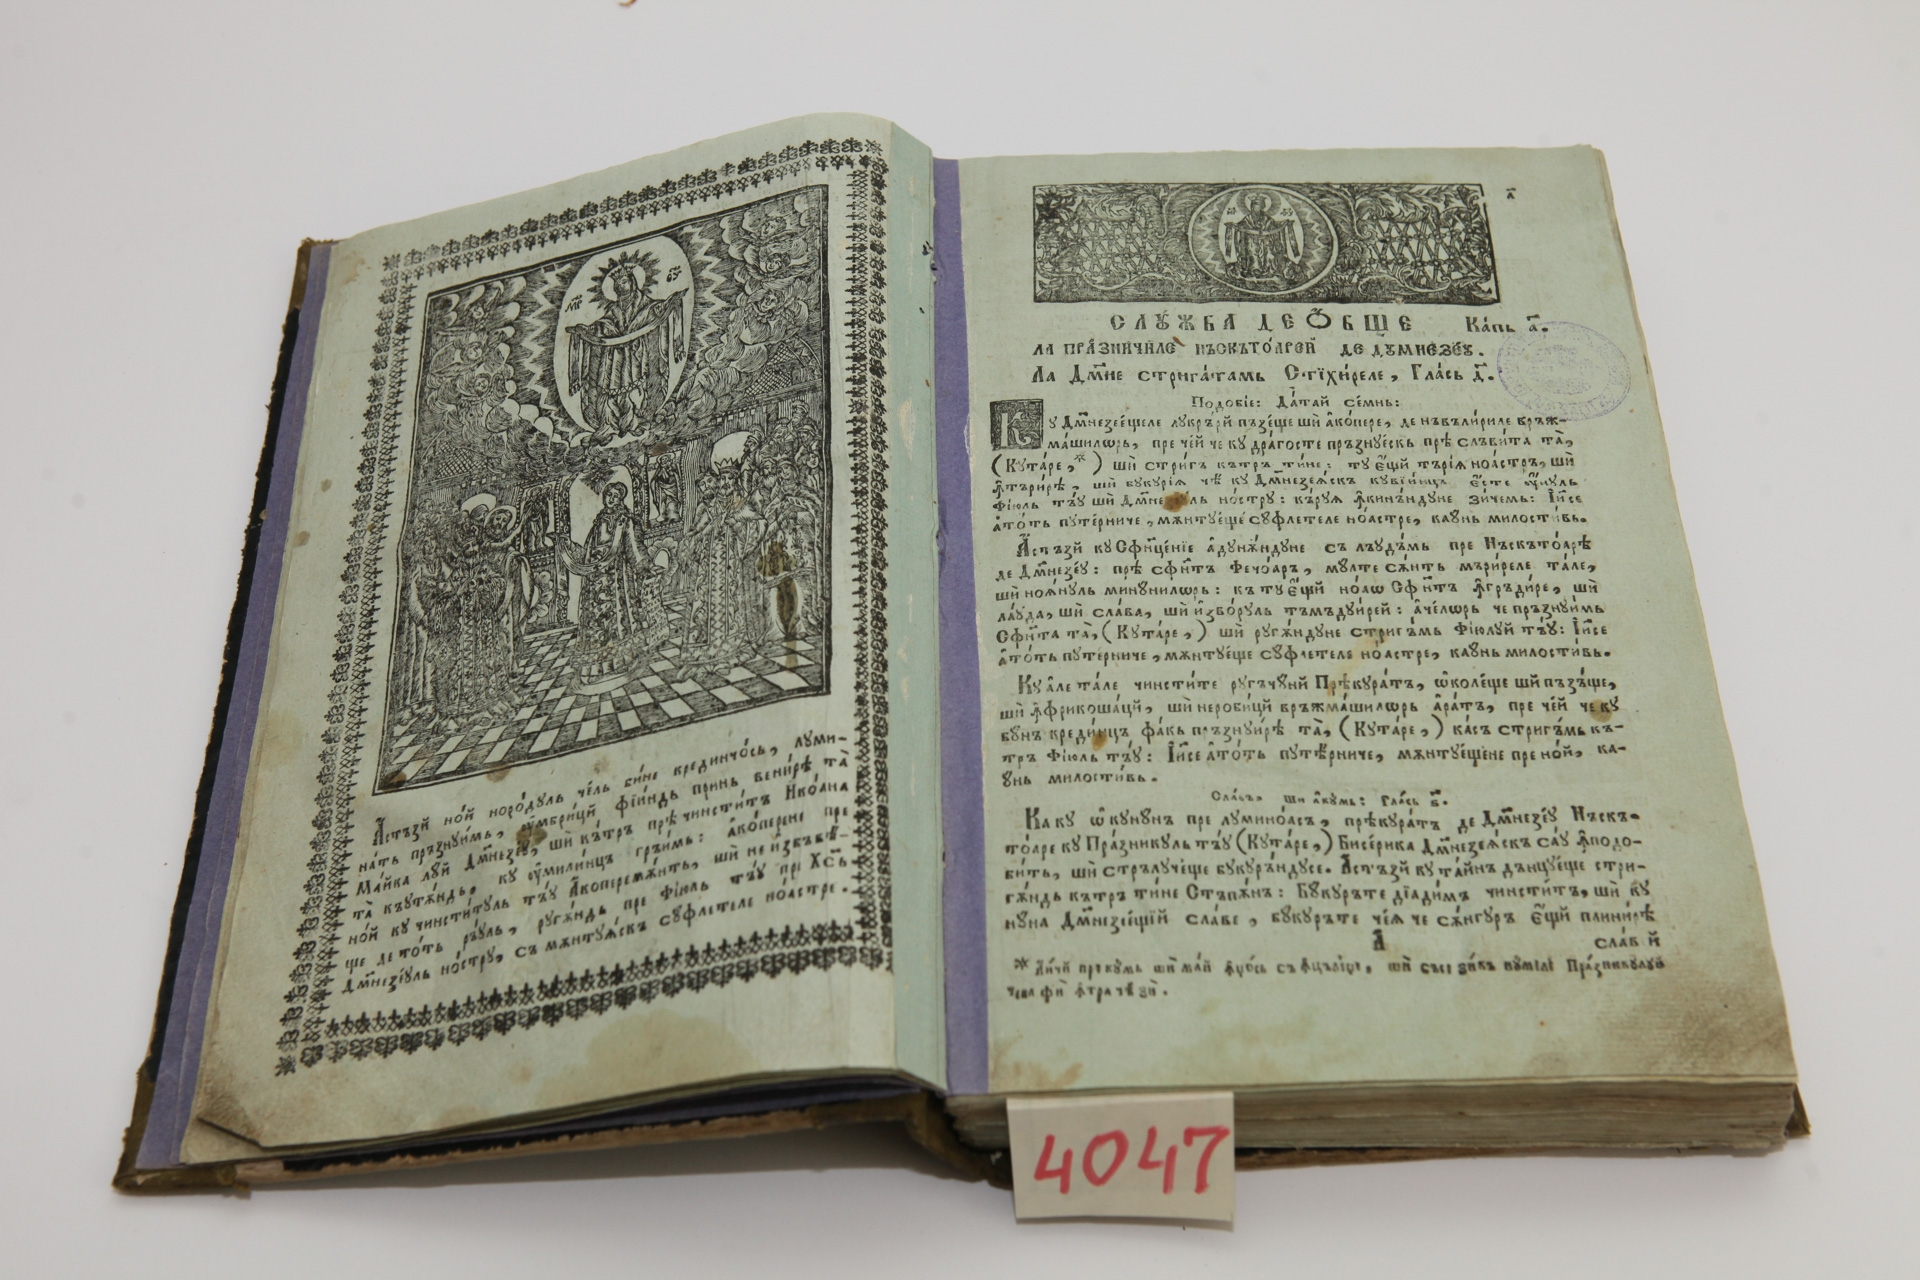 Астъзй ной нородꙋль че́ль бине крединчо́сь, лꙋми-
на́ть пръзнꙋи́мь, ꙋ҆мбри́цй фїи́ндь принь вени́рѣ та̀
Ма́йка лꙋй Дм҃незе́ꙋ, шѝ кътръ прѣ чинсти́тъ Ико́ана
та̀ къꙋта́ндь, кꙋ ꙋ҆мили́нцъ гръи́мь: а҆копере́не пре
но́й кꙋ чинсти́тꙋль тъ́ꙋ Акоперемѫ́нть, шѝ не и҆збъвѣ́-
ще де то́ть ръ́ꙋль, рꙋгѫ́ндь пре Фі́юль тъ́ꙋ пре Хс҃ъ
Дм҃незе́ꙋль но́стрꙋ, съ мѫнтꙋѧ́скъ сꙋфлетеле но́астре.
а҃
СЛꙊ́ЖБА ДЕ Ѻ҆БЩЕ Ка́пь а҃.
ла пра́зничиле нъскъто́арей де дꙋмнезе́ꙋ.
Ла Дм҃не стрига́тамь Стїхи́реле, Гла́сь д҃.
Подобіе: Да́тай се́мнь:
Кꙋ Дм҃незее́щеле лꙋкръ́рй пъзе́ще шѝ а҆ко́пере, де нъвъли́риле връж-
ма́шилѡрь, пре че́й че кꙋ дра́госте пръзнꙋе́скь прѣ слъви́та та̀,
(Кꙋта́ре,*) шѝ стри́гъ кътръ ти́не: тꙋ є҆щй търі́ѧ ноа́стръ, шѝ
ꙟ҆търи́рѣ, шѝ бꙋкꙋрі́ѧ че́ кꙋ Дм҃незеѧ́скъ кꙋвїи́нцъ є҆сте ꙋ҆нꙋль
Фі́юль тъ́ꙋ шѝ Дм҃незе́ꙋль но́стрꙋ: кърꙋѧ ꙟ҆кинѫ́ндꙋне зи́чемь: Іи҃се
а҆то́ть пꙋте́рниче, мѫнтꙋе́ще сꙋфлетеле ноа́стре, ка ꙋ҆нь милости́вь.
Астъзй кꙋ Сфи҃це́нїе а҆дꙋнѫ́ндꙋне съ лъꙋдъ́мь пре Нъскъто́арѣ
де Дм҃незе́ꙋ: прѣ сфн҃тъ Фечо́аръ, мꙋлте сѫ́нть мъри́реле та́ле,
шѝ ноѧ́нꙋль минꙋнилѡрь: къ тꙋ є҆щй но́аѡ Сфн҃тъ ꙟ҆гръди́ре, шѝ
ла́ꙋда, шѝ сла́ва, шѝ и҆зво́рꙋль тъмъдꙋи́рей: а҆че́лѡрь че пръзнꙋи́мь
Сфн҃та та̀, (Кꙋта́ре,) шѝ рꙋгѫ́ндꙋне стрига́мь Фі́юлꙋй тъ́ꙋ: Іи҃се
а҆то́ть пꙋте́рниче, мѫнтꙋе́ще сꙋфлетеле ноа́стре, ка ꙋ҆нь милости́вь.
Кꙋ а҆ле та́ле чинсти́те рꙋгъчꙋ́нй Прѣкꙋра́тъ, ѡ҆коле́ще шѝ пъзъ́ще,
шѝ ꙟ҆фрикоша́цй, шѝ неробицй връжма́шилѡрь а҆ра́тъ, пре че́й че кꙋ
бꙋ́нъ креди́нцъ фа́кь пръзнꙋи́рѣ та̀, (Кꙋта́ре,) ка съ стрига́мь къ-
тръ Фі́юль тъ́ꙋ: Іи҃се а҆то́ть пꙋтѣ́рниче, мѫнтꙋе́щене пре но́й, ка-
ꙋ҆нь милости́вь.
Сла́въ, шѝ а҆кꙋмь: Гла́сь в҃.
Ка кꙋ ѡ҆ кꙋнꙋ́нъ пре лꙋмино́асъ, прѣкꙋра́тъ де Дм҃незе́ꙋ Нъскъ-
то́аре кꙋ Пра́зникꙋль тъ́ꙋ (Кꙋта́ре,) Бисе́рика Дм҃незеѧ́скъ са́ꙋ ꙟ҆подо-
би́ть, шѝ стрълꙋче́ще бꙋкꙋрѫ́ндꙋсе. Астъзй кꙋ та́йнъ дънцꙋе́ще стри-
гѫ́ндь кътръ ти́не Стъпѫ́нъ: Бꙋкꙋръте дїади́мъ чинсти́тъ, шѝ кꙋ
нꙋна Дм҃незее́щїй сла́ве, бꙋкꙋръте че́ѧ че сѫ́нгꙋръ є҆щй плини́рѣ
А сла́вїй
* Аи́чй прекꙋмь шѝ ма́й ꙟ҆ко́сь
4047